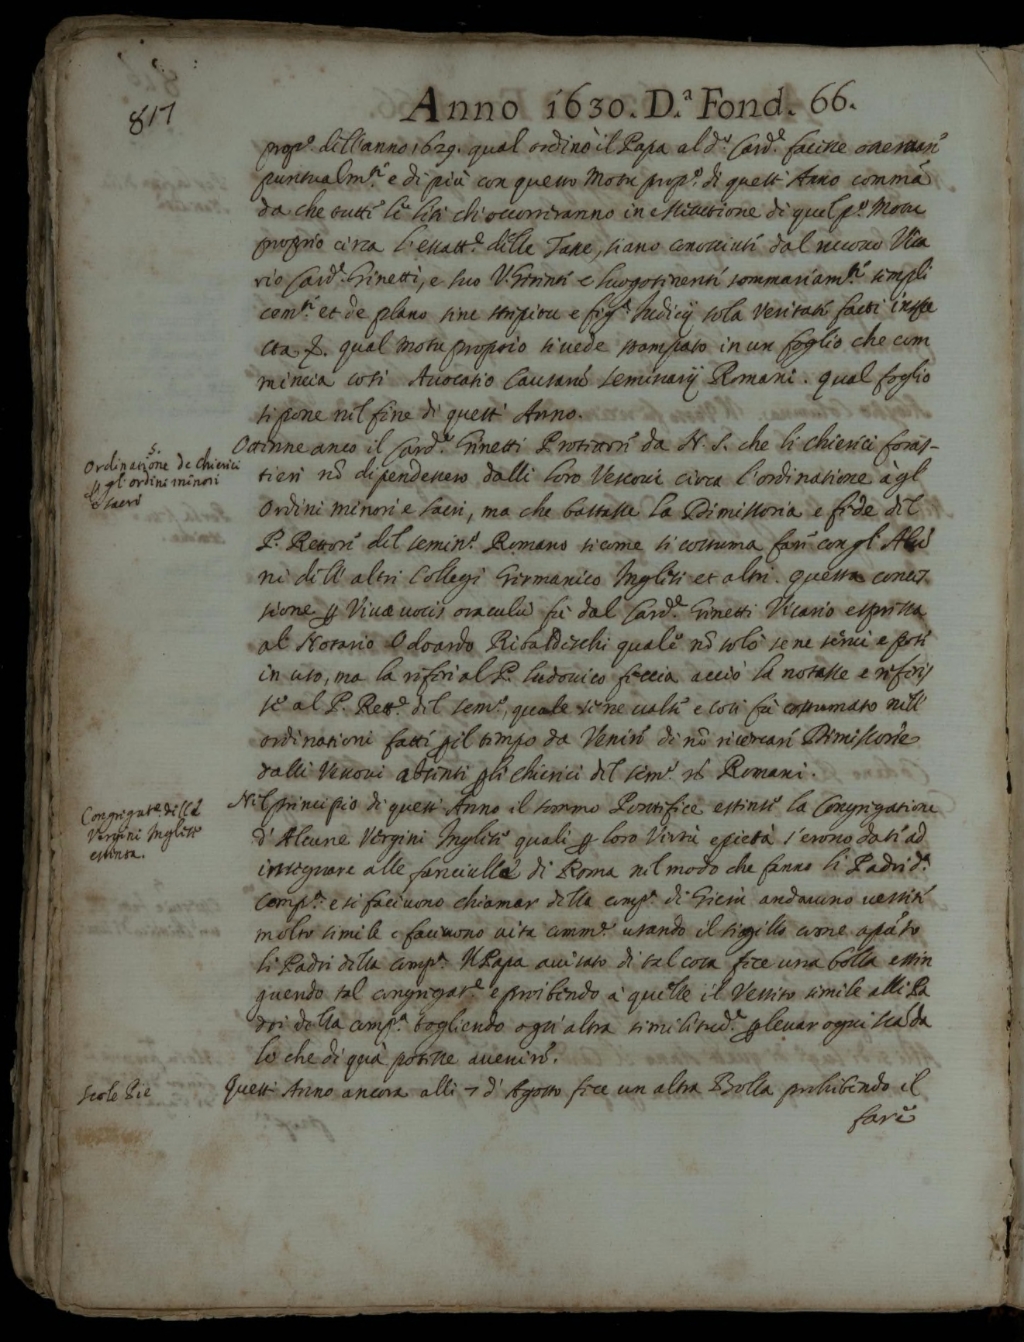 817
Anno 1630. D.ª Fond. 66.
prop.º dell'anno 1629. qual ordinò il Papa al d.º Card.e facesse osservar
puntualm.te e di più con questo Motu prop.º di quest'Anno comma
da che tutti le liti ch'occorriranno in essecutione di quel p.º Motu
proprio circa l'esatt.e delle Taxe, siano conosciuti dal nuovo Vica
rio Card.e Ginetti, e suo V.Gerenti e luogotinenti sommariam.te simpli
cem.te et de plano sine strepitu e fig.ª Iudicij sola veritate facti inspe
cta &. qual Motu proprio si vede stampato in un foglio che com
mincia così Avocatio Causarũ Seminarij Romani. qual foglio
si pone nel fine di quest'Anno.
5.
Ordinatione de Chierici
ꝑ gl'ordini minori
e sacri
Ottenne anco il Card.e Ginetti Protettore da N. S. che li Chierici foras-
tieri nõ dipendessero dalli loro Vescovi circa l'ordinatione à gl'
Ordini minori e sacri, ma che bastasse la Dimissoria e fede del
P. Rettore del Semin.º Romano sicome si costuma fare con gl'Alũ
ni dell'altri Collegi Germanico Inglesi et altri. questa conces
sione ꝑ Vivæ vocis oraculũ fù dal Card.e Ginetti Vicario espressa
al Notario Odoardo quale nõ solo se ne servì e pose
in uso, ma la riferì al P. Ludovico acciò la notasse e riferis
se al P. Rett.e del Sem.º, quale se ne valse e così fù costumato nell'
ordinationi fatte ꝑ il tempo da Venire di nõ ricercare Dimissorie
dalli Vescovi absenti ꝑ li chierici del Sem.º nõ Romani.
Congregat.e delle
Vergini Inglese
estinta.
Nel principio di quest'Anno il sommo Pontifice estinse la Congregatione
d'Alcune Vergini Inglesi quali ꝑ loro Virtù e pietà s'erono date ad
insegnare alle fanciulle di Roma nel modo che fanno li Padri d.ª
Comp.ª e si facivono chiamar della comp.ª di Giesù andavono vestite
molto simile e facivono vita comm.e usando il sigillo come
li Padri della comp.ª Il Papa avisato di tal cosa fece una bolla estin
guendo tal congregat.e e proibendo à quelle il Vestito simile alli Pa
dri della comp.ª togliendo ogn'altra similitud.e ꝑ levar ogni scãda
lo che di quà potesse avenire.
Scole Pie
Quest'Anno ancora alli 7 d'Agosto fece un altra Bolla prohibendo il
fare